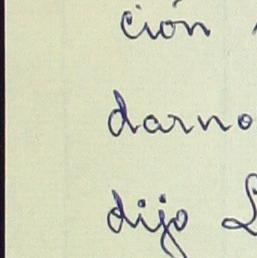 ción
darno
dijo